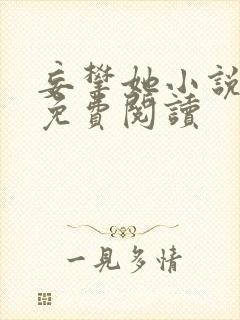 妄攀她小說
免費閱讀
一見多情